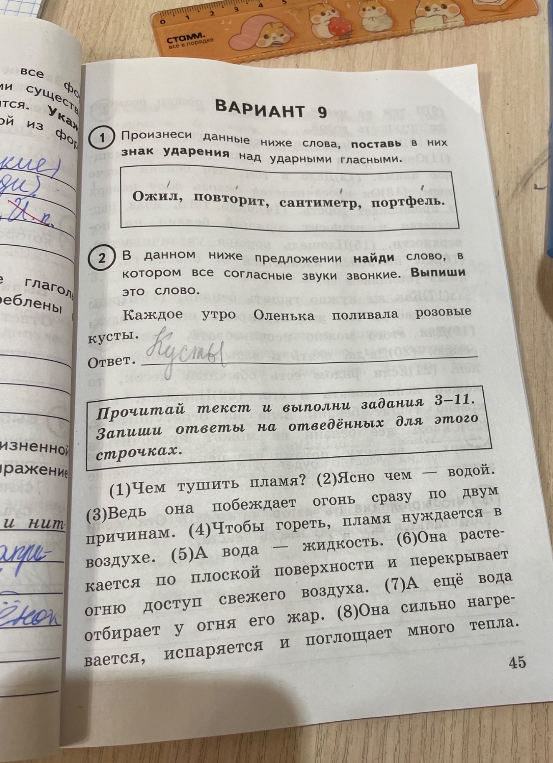 СТАММ.
всё в порядке
0 1 2 3 4 5
все
ми существ
тся. Ука
ой из фор
и. п.
глаголь
реблены
изненной
ражение
и нит-
ВАРИАНТ 9
1 Произнеси данные ниже слова, поставь в них
знак ударения над ударными гласными.
Ожил, повторит, сантиметр, портфель.
2 В данном ниже предложении найди слово, в
котором все согласные звуки звонкие. Выпиши
это слово.
Каждое утро Оленька поливала розовые
кусты.
Ответ. Кусты
Прочитай текст и выполни задания 3–11.
Запиши ответы на отведённых для этого
строчках.
(1)Чем тушить пламя? (2)Ясно чем — водой.
(3)Ведь она побеждает огонь сразу по двум
причинам. (4)Чтобы гореть, пламя нуждается в
воздухе. (5)А вода — жидкость. (6)Она расте-
кается по плоской поверхности и перекрывает
огню доступ свежего воздуха. (7)А ещё вода
отбирает у огня его жар. (8)Она сильно нагре-
вается, испаряется и поглощает много тепла.
45